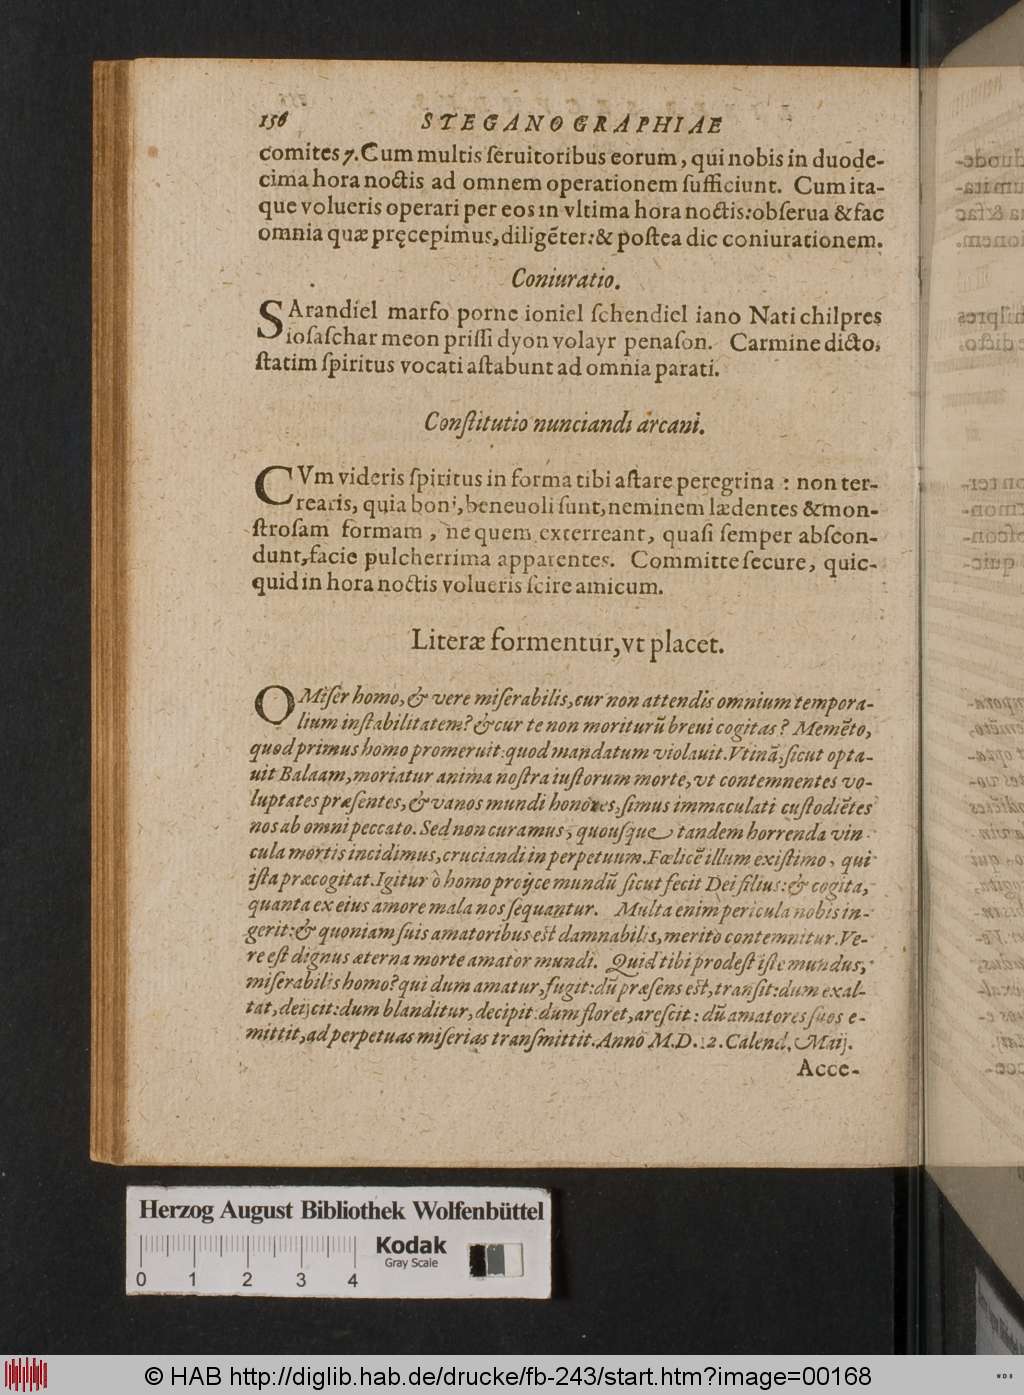 156 STEGANOGRAPHIAE
comites 7. Cum multis ſeruitoribus eorum, qui nobis in duode-
cima hora noctis ad omnem operationem ſufficiunt. Cum ita-
que volueris operari per eos in vltima hora noctis: obſerua & fac
omnia quæ pręcepimus, diligẽter: & poſtea dic coniurationem.
Coniuratio.
SArandiel marfo porne ioniel ſchendiel iano Nati chilpres
ioſaſchar meon priſſi dyon volayr penaſon. Carmine dicto,
ſtatim ſpiritus vocati aſtabunt ad omnia parati.
Conſtitutio nunciandi arcani.
CVm videris ſpiritus in forma tibi aſtare peregrina : non ter-
rearis, quia boni, beneuoli ſunt, neminem lædentes & mon-
ſtroſam formam, ne quem exterreant, quaſi ſemper abſcon-
dunt, facie pulcherrima apparentes. Committe ſecure, quic-
quid in hora noctis volueris ſcire amicum.
Literæ formentur, vt placet.
O Miſer homo, & vere miſerabilis, cur non attendis omnium tempora-
lium inſtabilitatem? & cur te non moriturũ breui cogitas? Memẽto,
quod primus homo promeruit: quod mandatum violauit. Vtinã, ſicut opta-
uit Balaam, moriatur anima noſtra iuſtorum morte, vt contemnentes vo-
luptates præſentes, & vanos mundi honores, ſimus immaculati cuſtodiẽtes
nos ab omni peccato. Sed non curamus, quouſque tandem horrenda vin-
cula mortis incidimus, cruciandi in perpetuum. Fœlicẽ illum exiſtimo, qui
iſta præcogitat. Igitur ò homo proijce mundũ ſicut fecit Dei filius: & cogita,
quanta ex eius amore mala nos ſequantur. Multa enim pericula nobis in-
gerit: & quoniam ſuis amatoribus eſt damnabilis, merito contemnitur. Ve-
re eſt dignus æterna morte amator mundi. Quid tibi prodeſt iſte mundus,
miſerabilis homo? qui dum amatur, fugit: dũ præſens eſt, tranſit: dum exal-
tat, deijcit: dum blanditur, decipit: dum floret, areſcit: dũ amatores ſuos e-
mittit, ad perpetuas miſerias tranſmittit. Anno M.D. 2. Calend. Maij.
Acce-
Herzog August Bibliothek Wolfenbüttel
Kodak
Gray Scale
0 1 2 3 4
© HAB http://diglib.hab.de/drucke/fb-243/start.htm?image=00168